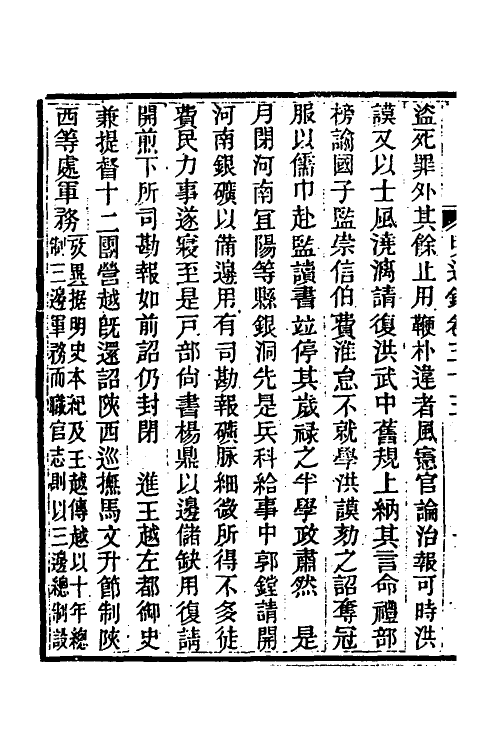 盜死罪外其餘止用鞭朴違者風憲官論治報可時洪
謨又以士風澆漓請復洪武中舊規上納其言命禮部
榜諭國子監崇信伯費淮怠不就學洪謨劾之詔奪冠
服以儒巾赴監讀書竝停其歲祿之半學政肅然 是
月閉河南宜陽等縣銀洞先是兵科給事中郭鏜請開
河南銀礦以備邊用有司勘報礦脉細微所得不多徒
費民力事遂寢至是戸部尙書楊鼎以邊儲缺用復請
開煎下所司勘報如前詔仍封閉 進王越左都御史
兼提督十二團營越旣還詔陝西巡撫馬文升節制陝
西等處軍務攷異據明史本紀及王越傳越以十年總
制三邊軍務而職官志則以三邊總制設